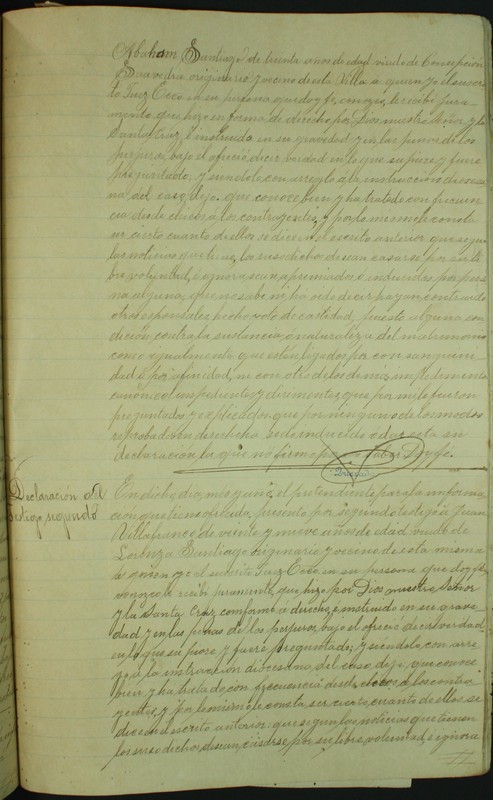 Abaham Santiago de treinta años de edad viudo de Concepción
Saavedra originario y vecino de esta Villa a quien yo el suscri-
to Juez Ecco en su persona que doy fe conozco, le recibí jura-
mento que hizo en forma de derecho por Dios nuestro Señor y la
Santa Cruz, é instruido en su gravedad y en las penas de los
perjuros, bajo él ofreció decir verdad en lo que supiere y fuere
preguntado; y siendolo con arreglo a la instrucción diocesa-
na del caso, dijo: que conoce bien y ha tratado con frecuen-
cia desde a los contrayentes, y por lo mismo le consta
ser cierto cuanto de ellos se dice en el escrito anterior; que segun
las noticias que tiene, los susodichos desean casarse por su li-
bre voluntad, é ignora sean apremiados ó inducidos por perso-
na alguna, que no sabe ni ha oido decir hayan contraido
otros esponsales, hecho voto de castidad, puesto alguna con-
dición contra la sustancia ó naturaleza del matrimonio
como igualmente que esten ligados por consanguini-
dad ó por afinidad, ni con otro de los demás impedimentos
canónicos impedientes y dirimentes, que por mi le fueron
preguntados y explicados, que por ninguno de los modos
reprobados en derecho ha sido inducido á dar esta su
declaración, la que no firmó por no saber. Doy fe.
Declaración del
testigo segundo
En dicho dia, mes y año, el pretendiente para la informa-
ción que tiene ofrecida, presentó por segundo testigo á Juan
Villafranco de veinte y nueve años de edad viudo de
Lorenza Santiago originario y vecino de esta misma
á quien yo el suscrito Juez Ecco en su persona que doy fe
conozco le recibí juramento, que hizo por Dios nuestro Señor
y la Santa Cruz, conforme a derecho, é instruido en su grave-
dad y en las penas de los perjuros, bajo él ofreció decir verdad
en lo que supiere y fuere preguntado; y siendolo, con arre-
glo á la instrucción diocesana del caso, dijo: que conoce
bien y ha tratado con frecuencia desde á los contra-
yentes, y por lo mismo le consta ser cierto, cuanto de ellos se
dice en el escrito anterior: que segun las noticias que tiene
los susodichos desean casarse por su libre voluntad, é ignora